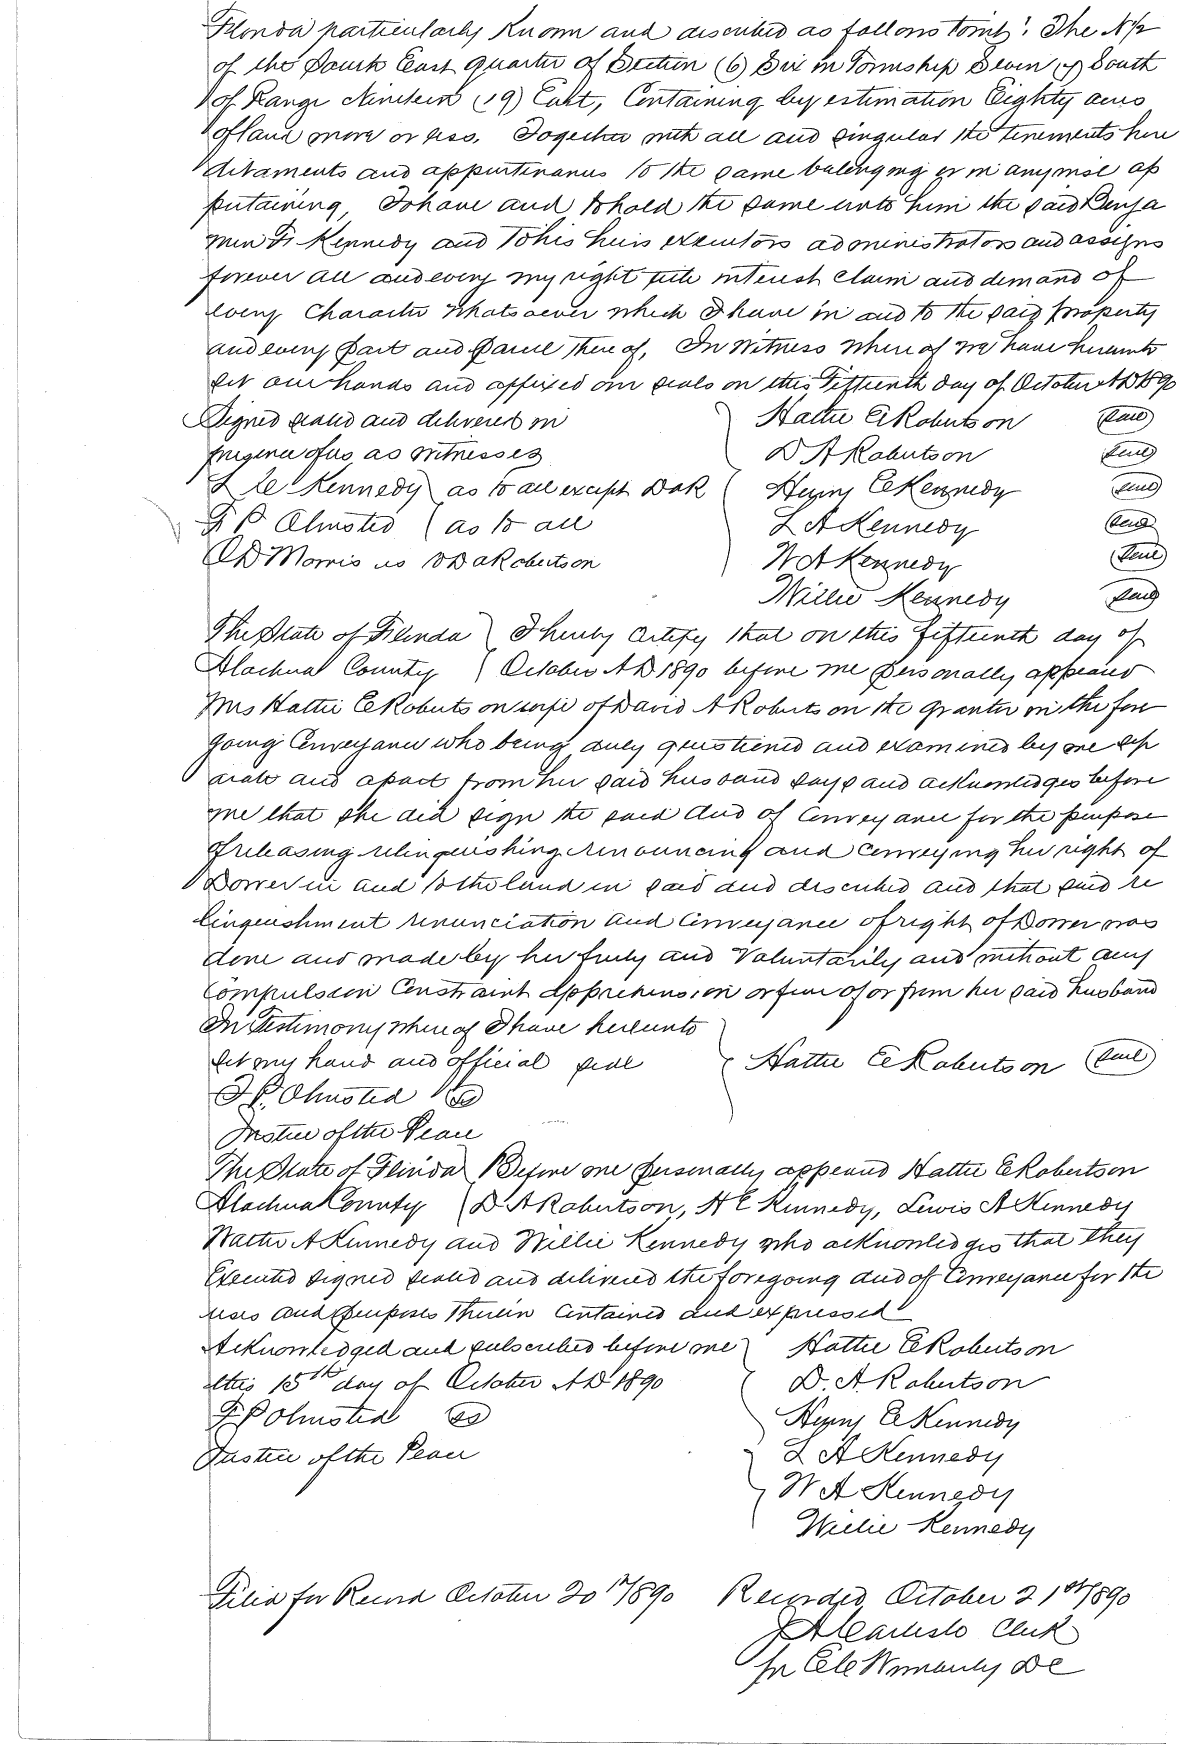 Florida particularly Known and described as follows towit: The N½
of the South East quarter of Section (6) Six in Township Seven (7) South
of Range Nineteen (19) East, Containing by estimation Eighty acres
of land more or less. Together with all and singular the tenements here
ditaments and appurtenances to the same belonging or in anywise ap
pertaining, To have and to hold the same unto him the said Benja
men F Kennedy and to his heirs executors administrators and assigns
forever all and every my right title interest claim and demand of
every Character whatsoever which I have in and to the said property
and every part and parcel there of, In Witness where of we have hereunto
set our hands and affixed our seals on this Fifteenth day of October A D 1890
Signed sealed and delivered in Hattie E Robertson (seal)
presence of us as witnesses D A Robertson (seal)
L C Kennedy as to all except D A R Henry E Kennedy (seal)
F P Olmsted (as to all L A Kennedy (seal)
O D Morris as to D A Robertson W A Kennedy (seal)
Willie Kennedy (seal)
The State of Florida I hereby certify that on this fifteenth day of
Alachua County October A D 1890 before me personally appeared
Mrs Hattie E Robertson wife of David A Robertson the grantor in the fore
going Conveyance who being duly questioned and examined by me sep
arate and apart from her said husband says and acknowledges before
me that she did sign the said deed of Conveyance for the purpose
of releasing relinquishing renouncing and conveying her right of
Dower in and to the land in said deed described and that said re
linquishment renunciation and Conveyance of right of Dower was
done and made by her freely and Voluntarily and without any
Compulsion Constraint Apprehension or fear of or from her said husband
In Testimony where of I have hereunto
set my hand and official seal Hattie E Robertson (seal)
F P. Olmsted
Justice of the Peace
The State of Florida Before me personally appeared Hattie E Robertson
Alachua County D A Robertson, H E Kennedy, Lewis A Kennedy
Walter A Kennedy and Willie Kennedy who acknowledges that they
Executed signed sealed and delivered the foregoing deed of Conveyance for the
uses and purposes therein contained and expressed
Acknowledged and subscribed before me Hattie E Robertson
this 15th day of October A D 1890 D. A. Robertson
F P Olmsted Henry E Kennedy
Justice of the Peace L A Kennedy
W A Kennedy
Willie Kennedy
Filed for Record October 20th/890 Recorded October 21st/890
J A Carlisle Clerk
pr DC